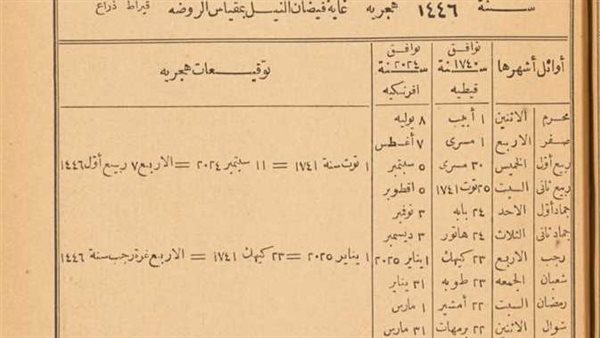 سنة ١٤٤٦ هجرية غاية فيضان النيل بمقياس الروضه قيراط ذراع
أوائل أشهرها توافق سنة ١٧٤٠ قبطيه توافق سنة ٢٠٢٤ افرنكيه توقيعات هجريه
محرم الاثنين ١ أبيب ٨ يوليه
صفر الاربع ١ مسرى ٧ أغسطس
ربيع أول الخميس ٣٠ مسرى ٥ سبتمبر ١ توت سنة ١٧٤١ = ١١ سبتمبر ٢٠٢٤ = الاربع ٧ ربيع أول ١٤٤٦
ربيع ثانى السبت ٢٥ توت ١٧٤١ ٥ اقطوبر
جماد أول الاحد ٢٤ بابه ٣ نوفمبر
جماد ثانى الثلاث ٢٤ هاتور ٣ ديسمبر
رجب الاربع ٢٣ كيهك ١ يناير ٢٠٢٥ ١ يناير ٢٠٢٥ = ٢٣ كيهك ١٧٤١ = الاربع غرة رجب سنة ١٤٤٦
شعبان الجمعه ٢٣ طوبه ٣١ يناير
رمضان السبت ٢٢ أمشير ١ مارس
شوال الاثنين ٢٢ برمهات ٣١ مارس